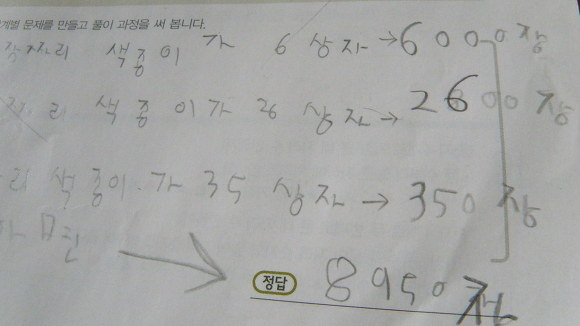 문제를 만들고 풀이 과정을 써 봅니다.
색종이가 6상자→6000장
리 색종이가 26 상자→2600장
리 색종이가 35 상자→350장
정답 8950장